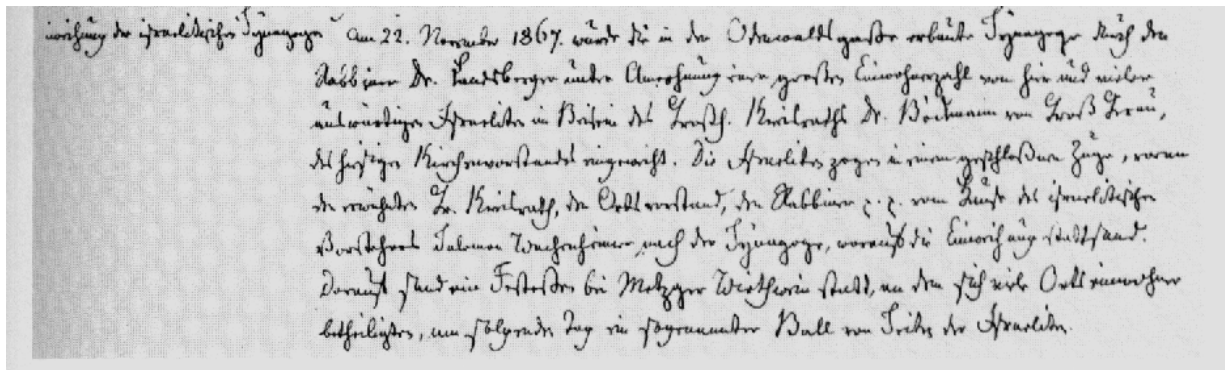 Einweihung der israelitischen Synagoge
Am 22. November 1867. wurde die in der Odenwaldsgaße erbaute Synagoge durch den
Rabbiner Dr. Landsberger unter Anwohnung einer großen Einwohnerzahl von hier und vieler
auswärtiger Israeliten im Beisein des Großh. Kreisraths Dr. Bodmann von Groß Gerau,
des hiesigen Kirchenvorstandes eingeweiht. Die Israeliten zogen in einem geschloßnen Zuge, voran
der erwähnte Gr. Kreisrath, der Ortsvorstand, der Rabbiner p. p. vom Hause des israelitischen
Vorstehers Salomon Wachenheimer nach der Synagoge, worauf die Einweihung stattfand.
Darauf fand ein Festeßen bei Metzger Wirthwein statt, an dem sich viele Ortseinwohner
betheiligten, am folgenden Tag ein sogenannter Ball von Seiten der Israeliten.